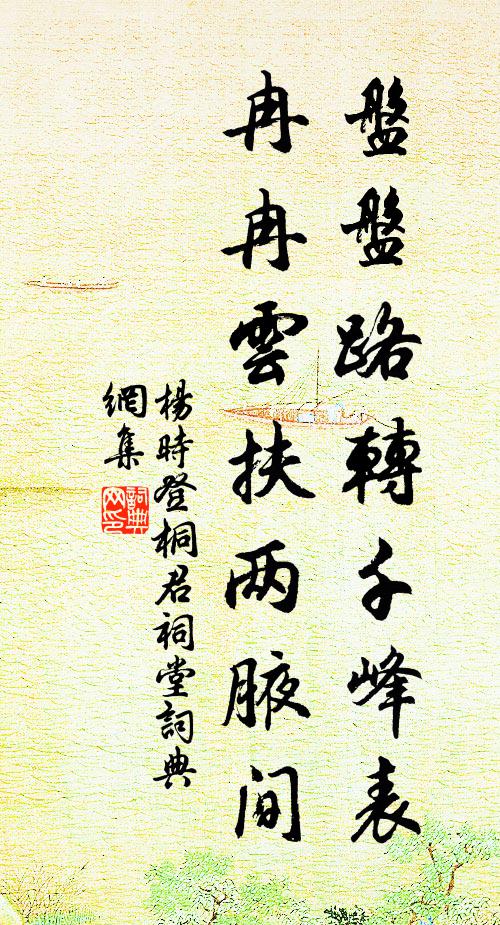 盤盤路轉千峰表
冉冉雲扶两腋間
楊時登桐君祠堂詞典
網集
詞典网印